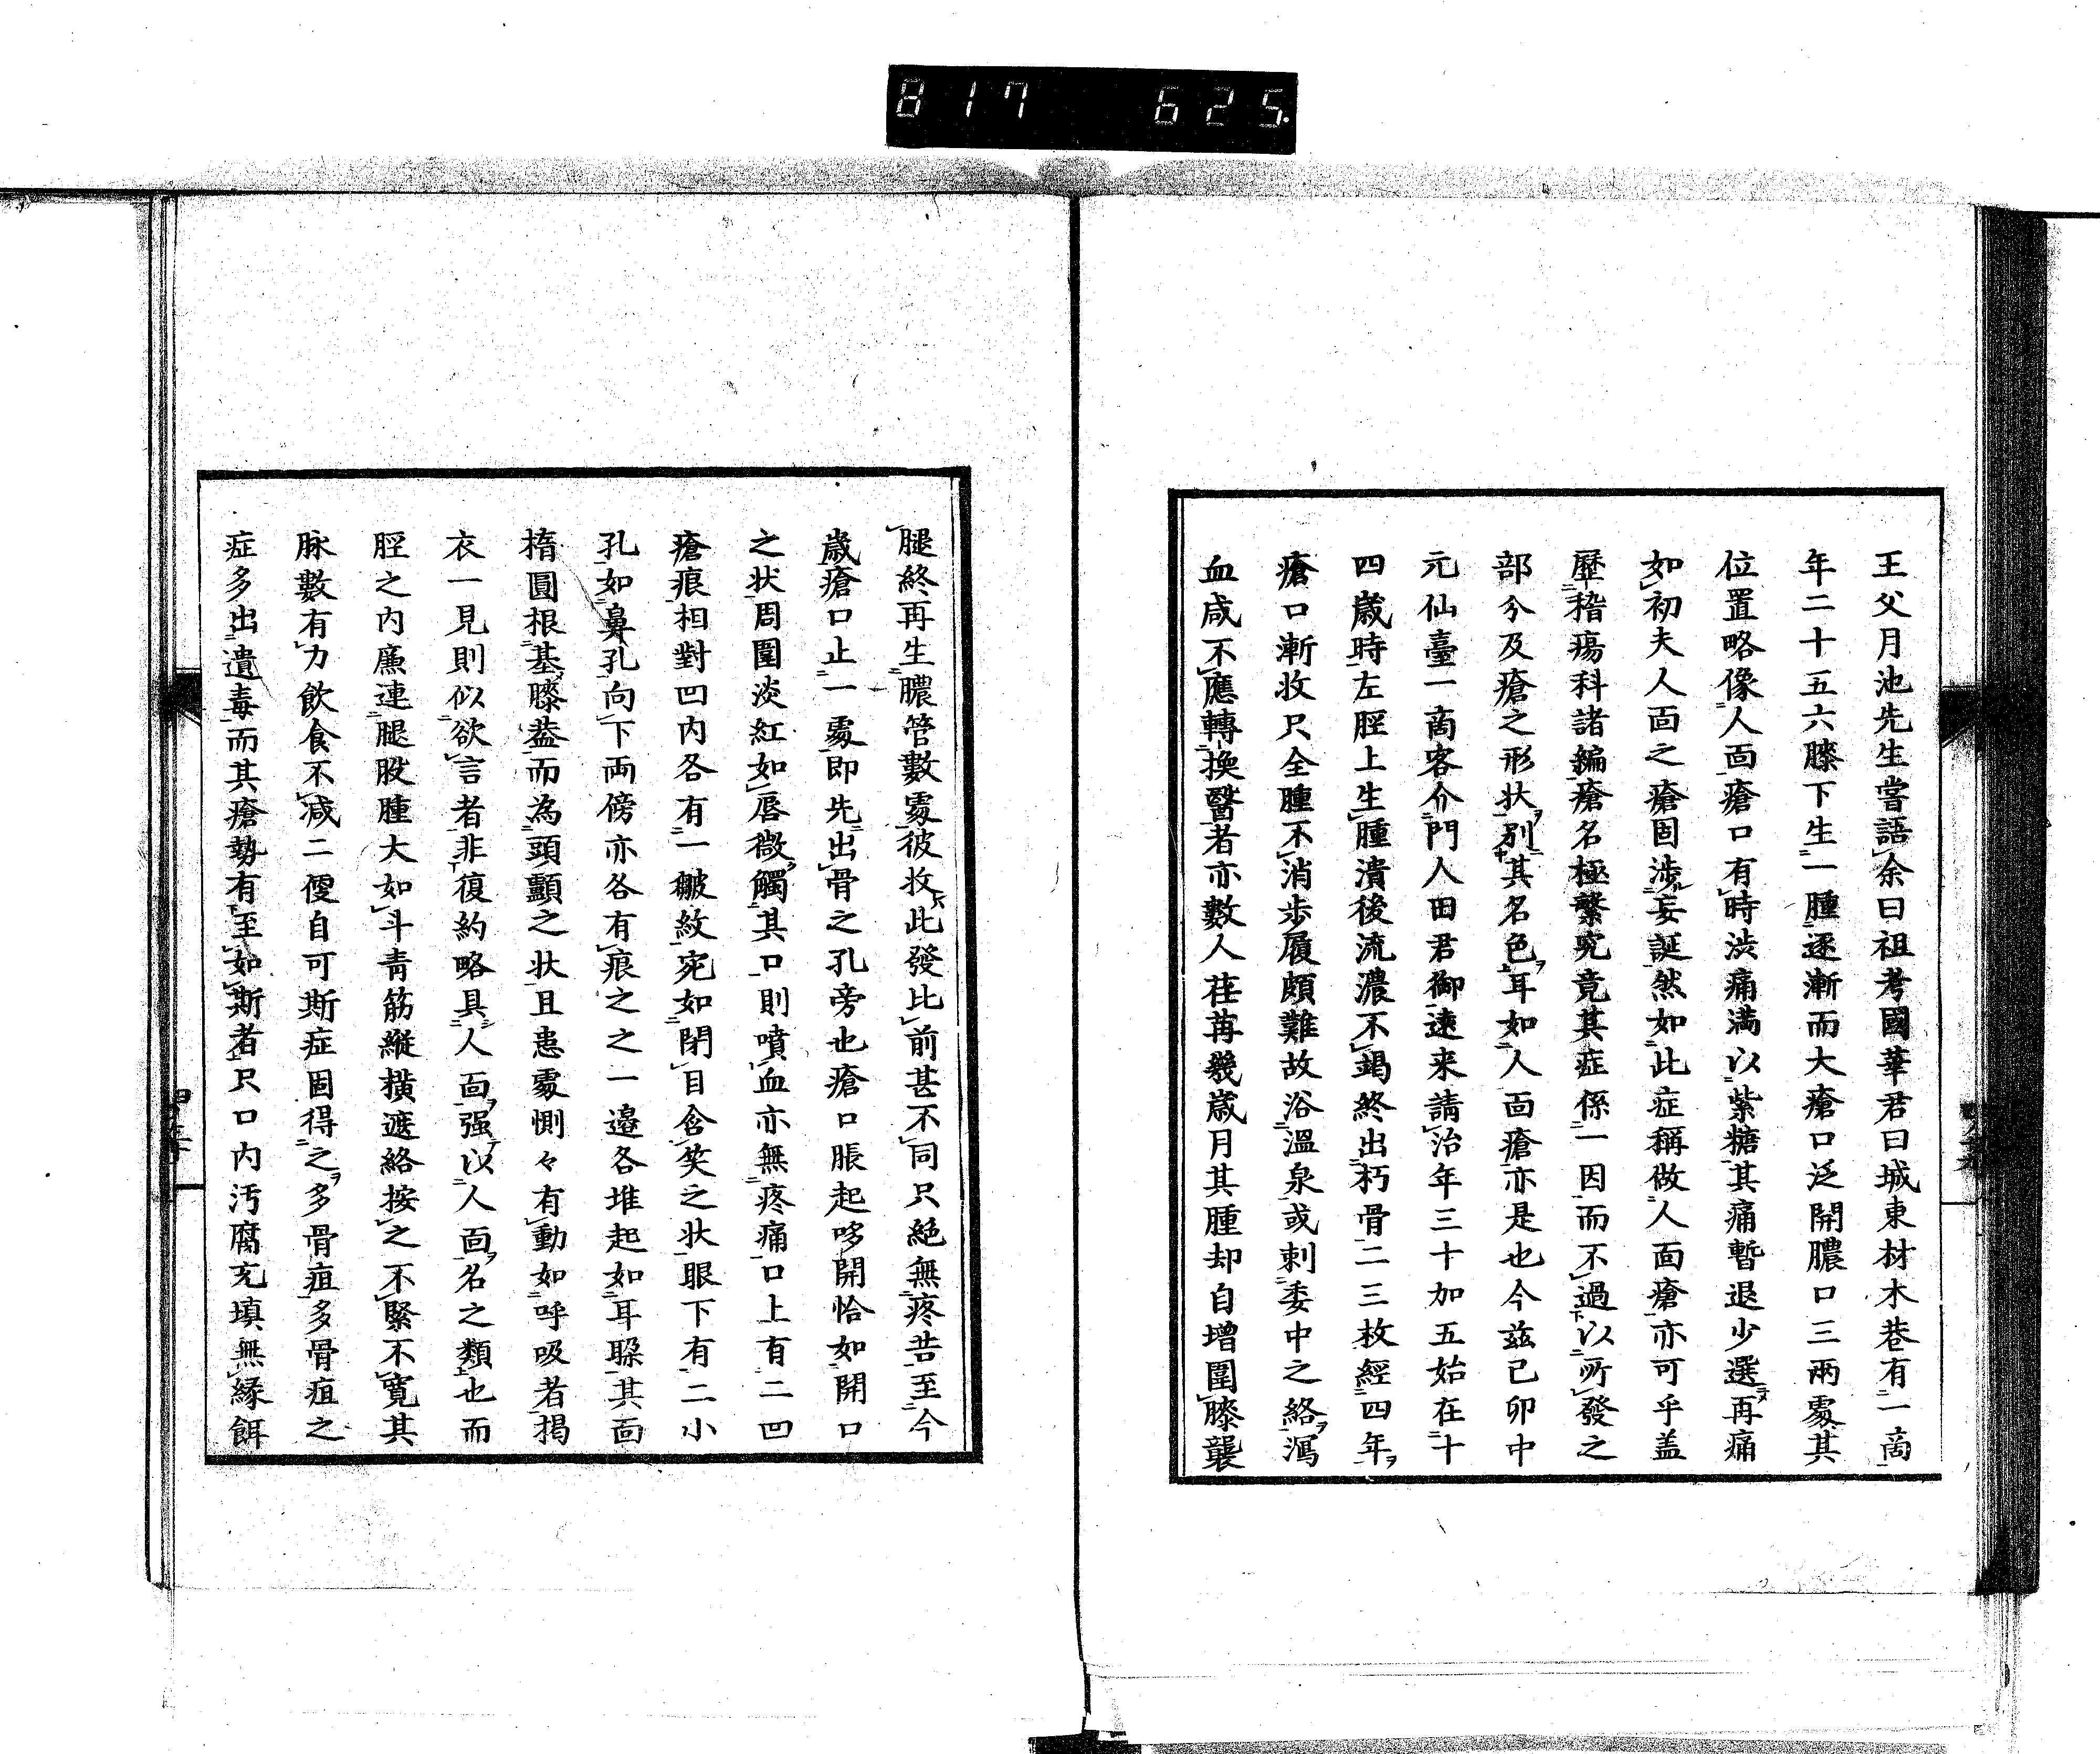 817 625.
王父月池先生嘗語余曰祖考國華君曰城東材木巷有一商
年二十五六膝下生一腫逐漸而大瘡口泛開膿口三兩處其
位置略像人面瘡口有時渋痛満以紫糖其痛暫退少選再痛
如初夫人面之瘡固渉妄誕然如此症稱做人面瘡亦可乎盖
歷稽瘍科諸編瘡名極繁究竟其症係一因而不過以所發之
部分及瘡之形状別其名色耳如人面瘡亦是也今茲己卯中
元仙臺一商客介門人田君御遠来請治年三十加五始在十
四歳時左脛上生腫潰後流濃不竭終出朽骨二三枚經四年
瘡口漸收只全腫不消歩履頗難故浴温泉或刺委中之絡瀉
血咸不應轉換醫者亦數人荏苒幾歳月其腫却自増圍膝襲
腿終再生膿管數處彼收此發比前甚不同只絶無疼苦至今
歳瘡口止一處即先出骨之孔旁也瘡口脹起哆開恰如開口
之状周圍淡紅如唇微觸其口則噴血亦無疼痛口上有二凹
瘡痕相對凹内各有一皺紋宛如閉目含笑之状眼下有二小
孔如鼻孔向下両傍亦各有痕之之一邉各堆起如耳朶其面
楕圓根基膝葢而為頭顱之状且患處惻々有動如呼吸者掲
衣一見則似欲言者非復約略具人面强以人面名之類也而
脛之内廉連腿股腫大如斗青筋縦横遮絡按之不緊不寛其
脉數有力飲食不减二便自可斯症固得之多骨疽多骨疽之
症多出遺毒而其瘡勢有至如斯者只口内汚腐充填無縁餌